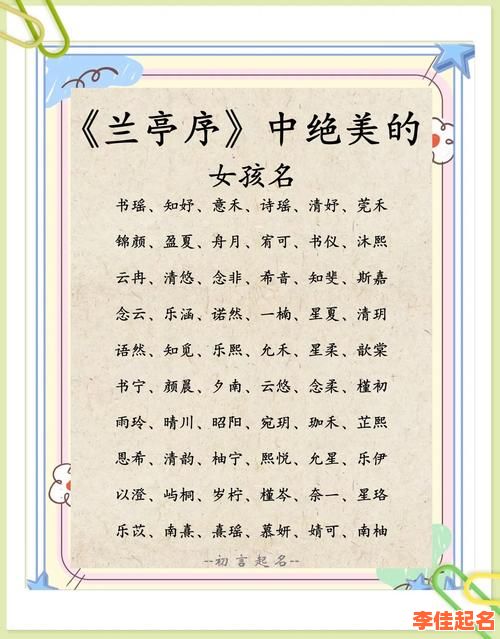 《兰亭序》中绝美的
女孩名
书瑶、知妤、意禾、诗瑶、清妤、莞禾
锦颜、盈夏、舟月、宥可、书仪、沐熙
云冉、清悠、念非、希音、知斐、斯嘉
念云、乐涵、诺然、一楠、星夏、清玥
语然、知觅、乐熙、允禾、星柔、歆棠
书宁、颜晨、夕南、云悠、念柔、槿初
雨玲、晴川、昭阳、宛玥、珈禾、芷熙
思希、清韵、柚宁、熙悦、允星、乐伊
以澄、屿桐、岁柠、槿岑、奈一、星珞
乐苡、南熹、熹瑶、慕妍、婧可、南柚
--初言起名--
李佳起名